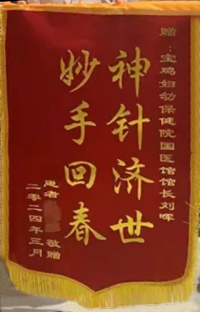 赠:宝鸡妇幼保健院国医馆馆长刘晖
神针济世
妙手回春
患者 敬赠
二零二四年三月